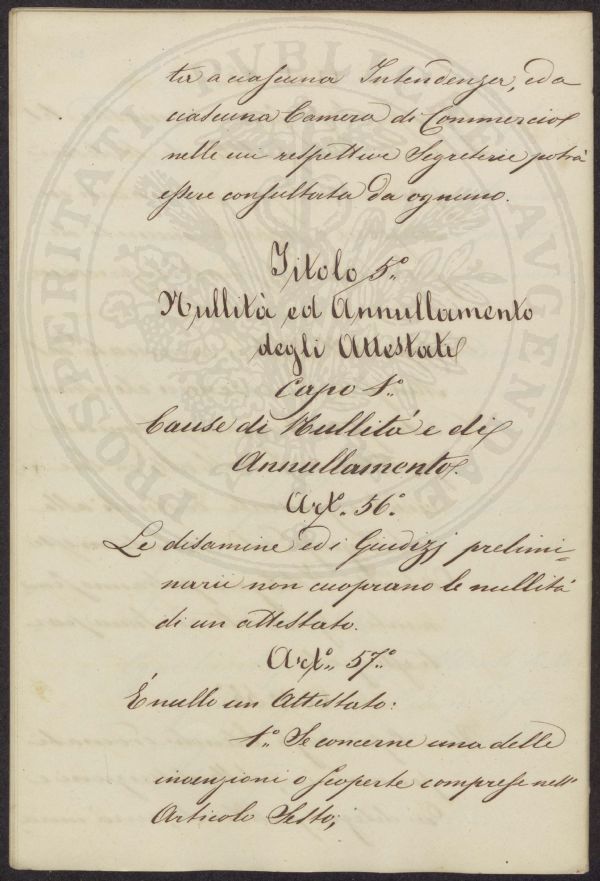 ta a ciascuna Intendenza, ed a
ciascuna Camera di Commercio
nelle cui respettive Segreterie potrà
essere consultata da ognuno.
Titolo 5.°
Nullità ed Annullamento
degli Attestati
Capo 1.°
Cause di Nullità e di
Annullamento.
Art.° 56.°
Le disamine ed i Giudizj prelimi=
narii non cuoprano le nullità
di un attestato.
Art.° 57.°
É nullo un Attestato:
1.° Se concerne una delle
invenzioni o scoperte comprese nell'
Articolo Sesto;
PROSPERITATI PVBLICAE AVGENDAE